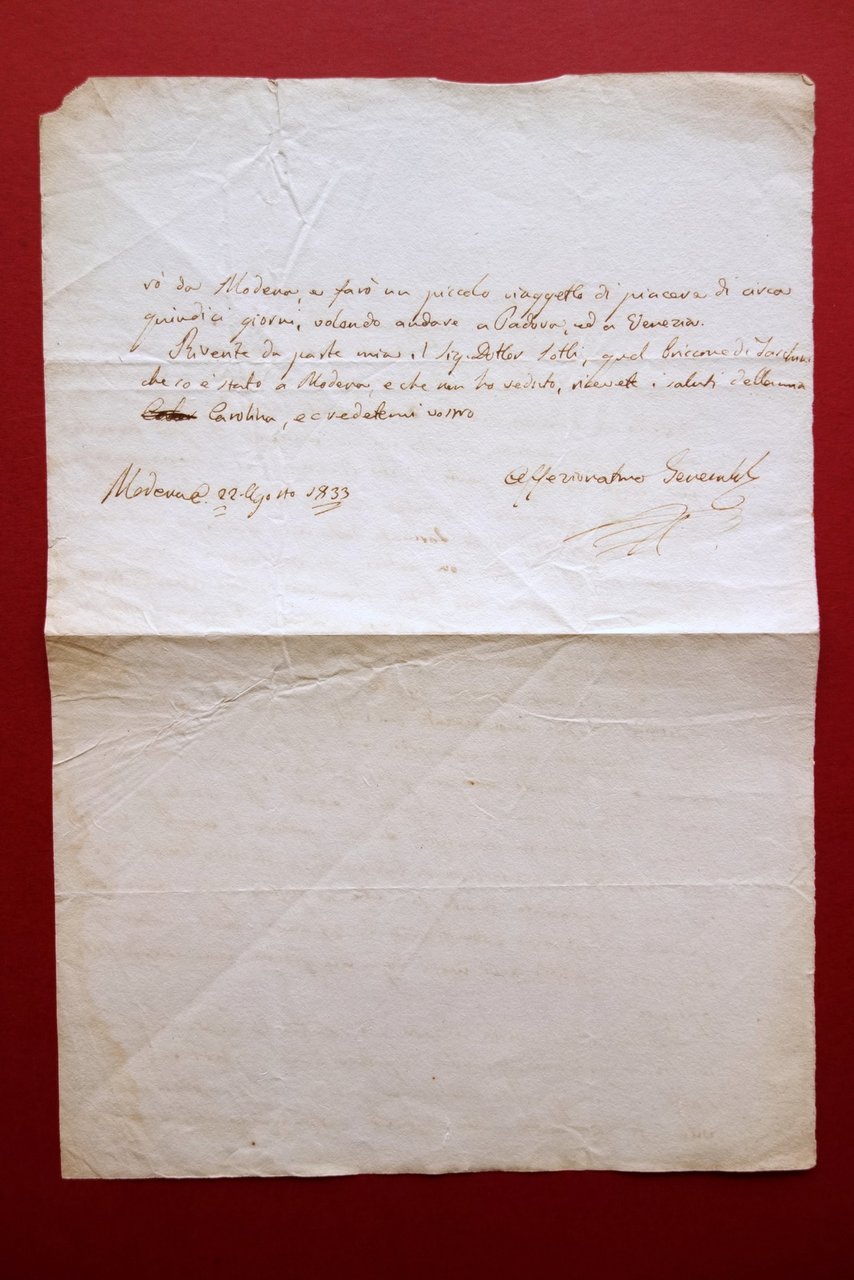 rò da Modena, e farò un piccolo viaggetto di piacere di circa
quindici giorni, volendo andare a Padova, ed a Venezia.
Riverite da parte mia il Sig. Dottor Sotti, quel briccone di
che so è stato a Modena, e che non ho veduto, ricevete i saluti della mia
Carolina, e credetemi vostro
Affezionatmo
Modena 22 Agosto 1833